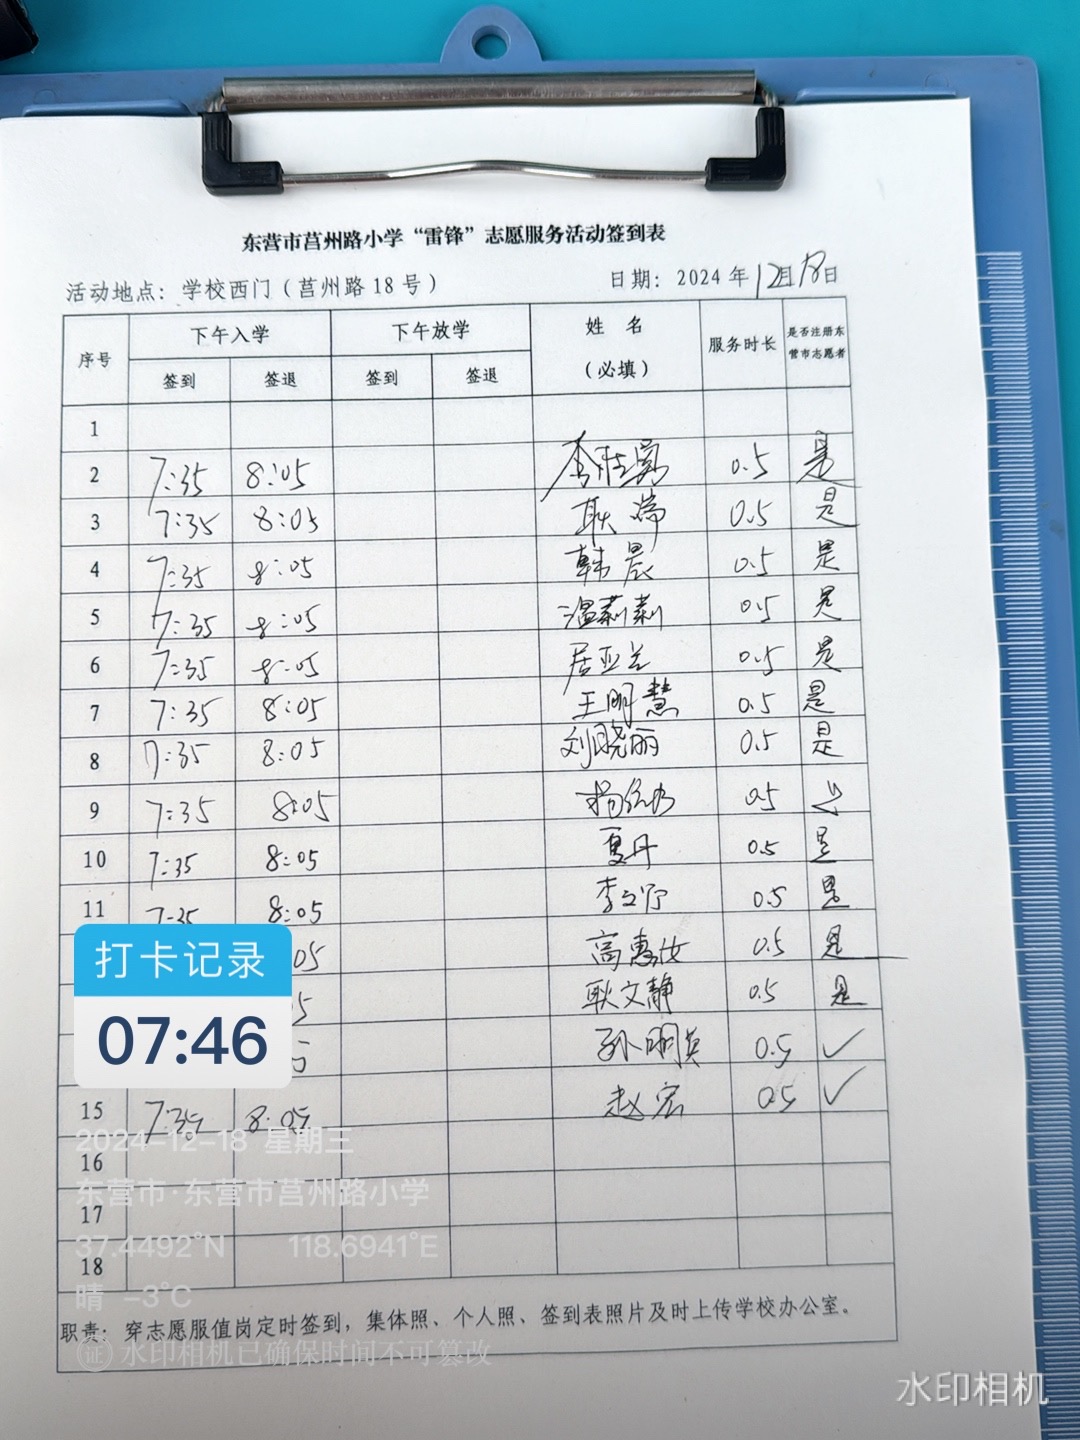 东营市莒州路小学“雷锋”志愿服务活动签到表
活动地点：学校西门（莒州路18号） 日期：2024年12月18日
序号 下午入学 下午放学 姓名（必填） 服务时长 是否注册东营市志愿者
签到 签退 签到 签退
1
2 7:35 8:05 李胜男 0.5 是
3 7:35 8:05 耿 0.5 是
4 7:35 8:05 韩晨 0.5 是
5 7:35 8:05 温莉莉 0.5 是
6 7:35 8:05 居亚兰 0.5 是
7 7:35 8:05 王明慧 0.5 是
8 7:35 8:05 刘晓丽 0.5 是
9 7:35 8:05 杨 0.5
10 7:35 8:05 夏丹 0.5 是
11 7-35 8:05 李 0.5 是
05 高惠汝 0.5 是
5 耿文静 0.5 是
孙明英 0.5 ✓
15 7:35 8:05 赵宏 0.5 ✓
16
17
18
职责：穿志愿服值岗定时签到，集体照、个人照、签到表照片及时上传学校办公室。
打卡记录
07:46
2024-12-18 星期三
东营市·东营市莒州路小学
37.4492°N 118.6941°E
晴 -3℃
证 水印相机已确保时间不可篡改
水印相机